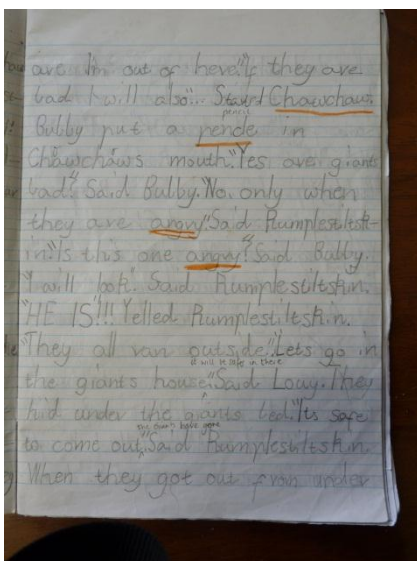 are I'm out of here." If they are
bad I will also". Stavrd Chawchaws.
pencil
Bulby put a pencle in
Chawchaws mouth. "Yes are giants
bad". Said Bulby. "No. only when
they are angry". Said Rumplestiltsk-
in. "Is this one angry"? Said Bulby.
"I will look". Said Rumplestiltskin.
"HE IS"!!! Yelled Rumplestiltskin.
"They all ran outside". "Lets go in
it will be safe in there
the giants house". Said Louy. They
hid under the giants bed. "Its safe
to come out". Said Rumplestiltskin.
When they got out from under